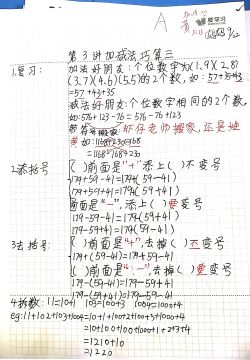 A
第3讲加减法巧算三
1.复习:
加法好朋友:个位数字为(1,9)(2,8)
(3,7)(4,6)(5,5)的2个数,如:57+35+43
=57+43+35
减法好朋友:个位数字相同的2个数,
如:576+123-76=576-76+123
带符号搬家
如:1168+230-168
=1168-168+230
2.添括号
( )前面是“+”,添上( )不变号
179+59-41=179+(59-41)
179+59+41=179+(59+41)
前面是“-”,添上( )要变号
179-59-41=179-(59+41)
179-59+41=179-(59-41)
3.去括号:
( )前面是“+”,去掉( )不变号
179+(59-41)=179+59-41
( )前面是“-”,去掉( )要变号
179-(59+41)=179-59-41
179-(59-41)=179-59+41
4.拆数:11=10+1 103=100+3 1004=1000+4
eg:11+102+1003+004=10+1+100+2+1000+3+1000+4
=10+100+100+1000+1+2+3+4
=1210+10
=1220